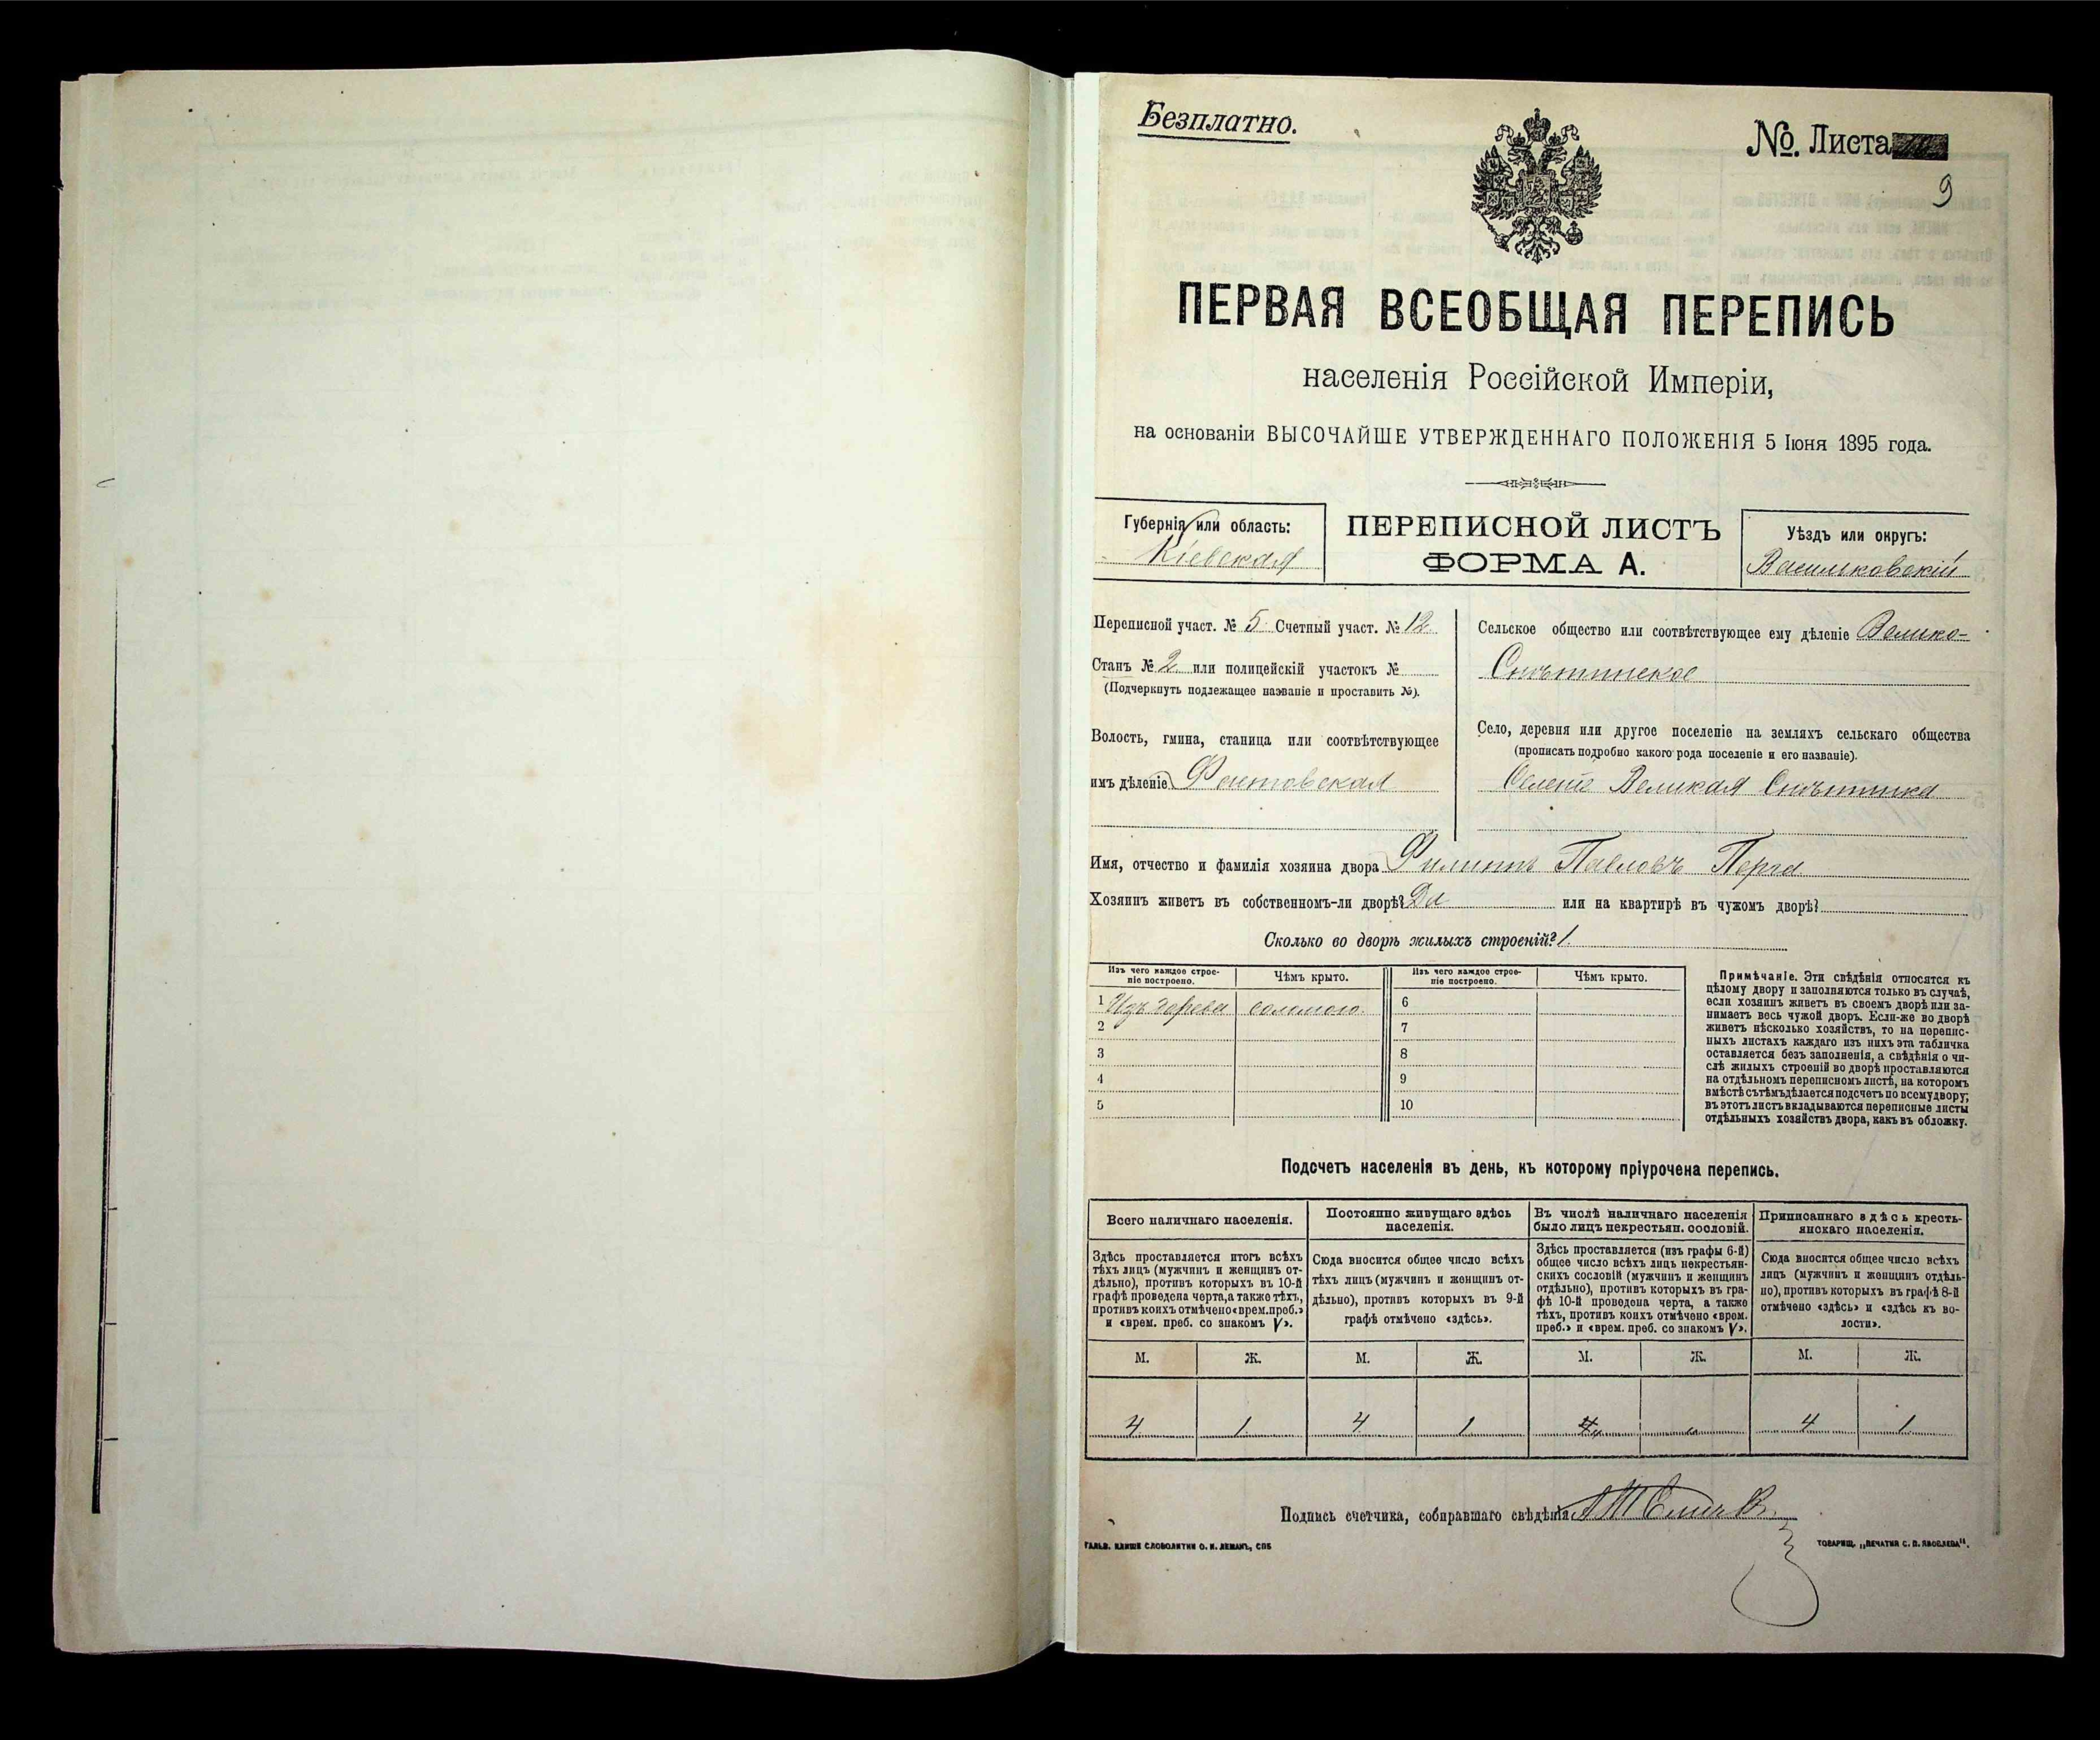 Безплатно.
№. Листа
9
ПЕРВАЯ ВСЕОБЩАЯ ПЕРЕПИСЬ
населенія Россійской Имперіи,
на основаніи ВЫСОЧАЙШЕ УТВЕРЖДЕННАГО ПОЛОЖЕНІЯ 5 Іюня 1895 года.
Губернія или область:
Кіевская
ПЕРЕПИСНОЙ ЛИСТЪ
ФОРМА А.
Уѣздъ или округъ:
Васильковскій
Переписной участ. № 5 Счетный участ. № 12
Станъ № 2 или полицейскій участокъ №
(Подчеркнуть подлежащее названіе и проставить №).
Волость, гмина, станица или соотвѣтствующее
имъ дѣленіе Фастовская
Сельское общество или соотвѣтствующее ему дѣленіе Велико-
Снѣтинское
Село, деревня или другое поселеніе на земляхъ сельскаго общества
(прописать подробно какого рода поселеніе и его названіе).
Великая Снѣтинка
Имя, отчество и фамилія хозяина двора Филиппъ Павловъ Перга
Хозяинъ живетъ въ собственномъ-ли дворѣ? Да или на квартирѣ въ чужомъ дворѣ?
Сколько во дворѣ жилыхъ строеній? 1.
Изъ чего каждое строе-
ніе построено.
Чѣмъ крыто.
Изъ чего каждое строе-
ніе построено.
Чѣмъ крыто.
1 Изъ дерева соломою 6
2 7
3 8
4 9
5 10
Примѣчаніе. Эти свѣдѣнія относятся къ
цѣлому двору и заполняются только въ случаѣ,
если хозяинъ живетъ въ своемъ дворѣ или за-
нимаетъ весь чужой дворъ. Если-же во дворѣ
живетъ нѣсколько хозяйствъ, то на перепис-
ныхъ листахъ каждаго изъ нихъ эта табличка
оставляется безъ заполненія, а свѣдѣнія о чи-
слѣ жилыхъ строеній во дворѣ проставляются
на отдѣльномъ переписномъ листѣ, на которомъ
вмѣстѣ съ тѣмъ дѣлается подсчетъ по всему двору;
въ этотъ листъ вкладываются переписные листы
отдѣльныхъ хозяйствъ двора, какъ въ обложку.
Подсчетъ населенія въ день, къ которому пріурочена перепись.
Всего наличнаго населенія.
Здѣсь проставляется итогъ всѣхъ
тѣхъ лицъ (мужчинъ и женщинъ от-
дѣльно), противъ которыхъ въ 10-й
графѣ проведена черта, а также тѣхъ,
противъ коихъ отмѣчено «врем. преб.»
и «врем. преб. со знакомъ V».
Постоянно живущаго здѣсь
населенія.
Сюда вносится общее число всѣхъ
тѣхъ лицъ (мужчинъ и женщинъ от-
дѣльно), противъ которыхъ въ 9-й
графѣ отмѣчено «здѣсь».
Въ числѣ наличнаго населенія
было лицъ некрестьян. сословій.
Здѣсь проставляется (изъ графы 6-й)
общее число всѣхъ лицъ некрестьян-
скихъ сословій (мужчинъ и женщинъ
отдѣльно), противъ которыхъ въ гра-
фѣ 10-й проведена черта, а также
тѣхъ, противъ коихъ отмѣчено «врем.
преб.» и «врем. преб. со знакомъ V».
Приписаннаго здѣсь кресть-
янскаго населенія.
Сюда вносится общее число всѣхъ
лицъ (мужчинъ и женщинъ отдѣль-
но), противъ которыхъ въ графѣ 8-й
отмѣчено «здѣсь» и «здѣсь къ во-
лости».
М. Ж. М. Ж. М. Ж. М. Ж.
4 1 4 1 4 1
Подпись счетчика, собиравшаго свѣдѣнія
ГАЛЬВ. КЛИШЕ СЛОВОЛИТНИ О. И. ЛЕМАНЪ, СПБ
ТОВАРИЩ. „ПЕЧАТНЯ С. П. ЯКОВЛЕВА".